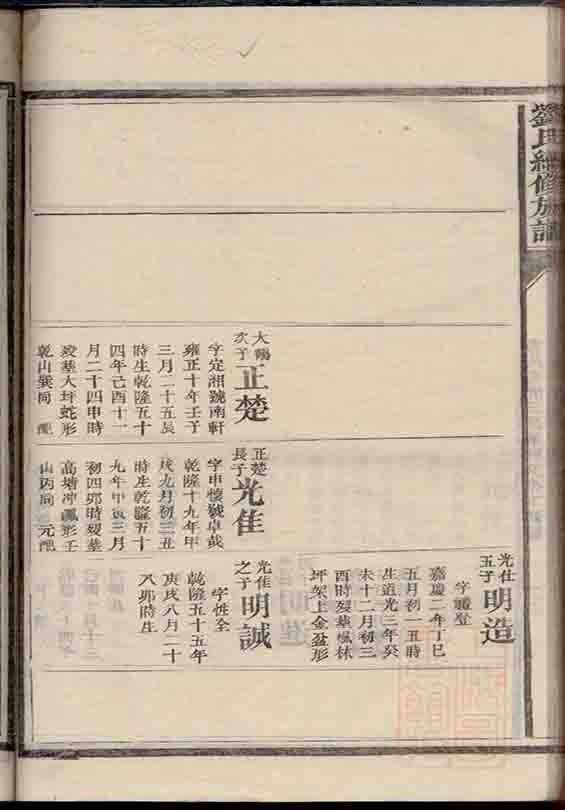 劉氏續修族譜
大鵾次子
正楚
字定湘號南軒
雍正十年壬子
三月二十五辰
時生乾隆五十
四年己酉十一
月二十四申時
歿葬大坪蛇形
乾山巽向 配
正楚長子
光佳
字申懷號卓哉
乾隆十九年甲
戌九月初三丑
時生乾隆五十
九年甲寅三月
初四卯時歿葬
高塘冲 形壬
山丙向 元配
光仕五子
明造
字
嘉慶二年丁巳
五月初一丑時
生道光三年癸
未十二月初三
酉時歿葬楓林
坪架上金盆形
光佳之子
明誠
字性全
乾隆五十五年
庚戌八月二十
八卯時生